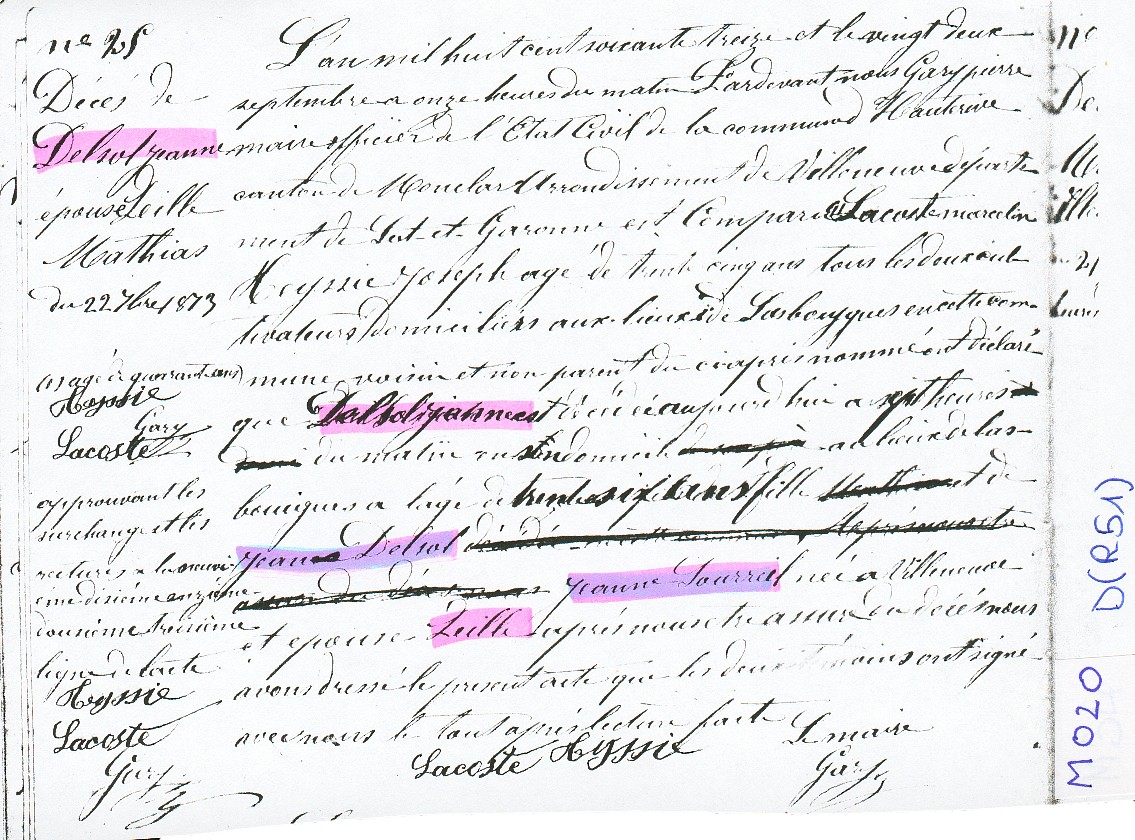 nº 25
Décés de
Delsol jeanne
épouse Leille
Mathias
du 22 7bre 1873
(1) agé de quarante ans
Heyssie
Gary
Lacoste
approuvant les
surcharges et les
ratures a la neuvi-
ème dixième onzième
douzième treizième
ligne de lacte
Heyssie
Lacoste
Gary
L'an mil huit cent soixante treize et le vingt deux
septembre a onze heures du matin Pardevant nous Gary pierre
maire officier de l'Etat Civil de la commune d'Hauterive
canton de Monclar Arrondissement de Villeneuve départe
ment de Lot-et-Garonne est Comparu (1) Lacoste marcelin
Heyssie Joseph agé de trente cinq ans tous les deux cul
tivateurs domiciliés aux lieux de Lasbouygues en cette com-
mune, voisin et non parent du ci après nommé ont déclaré
que Delsol jeanne est décédée aujourd'hui a sept heures
du matin en son domicile au lieux de Las-
bouigues a l'âge de trente six ans fille de
jean Delsol
jeanne Sourreil née a Villeneuve
et epouse Leille après nous etre assuré du décés nous
avons dressé le present acte que les deux témoins ont signé
avec nous le tout après lecture faite
Le maire
Lacoste Heyssie Gary
M020 D(R51)